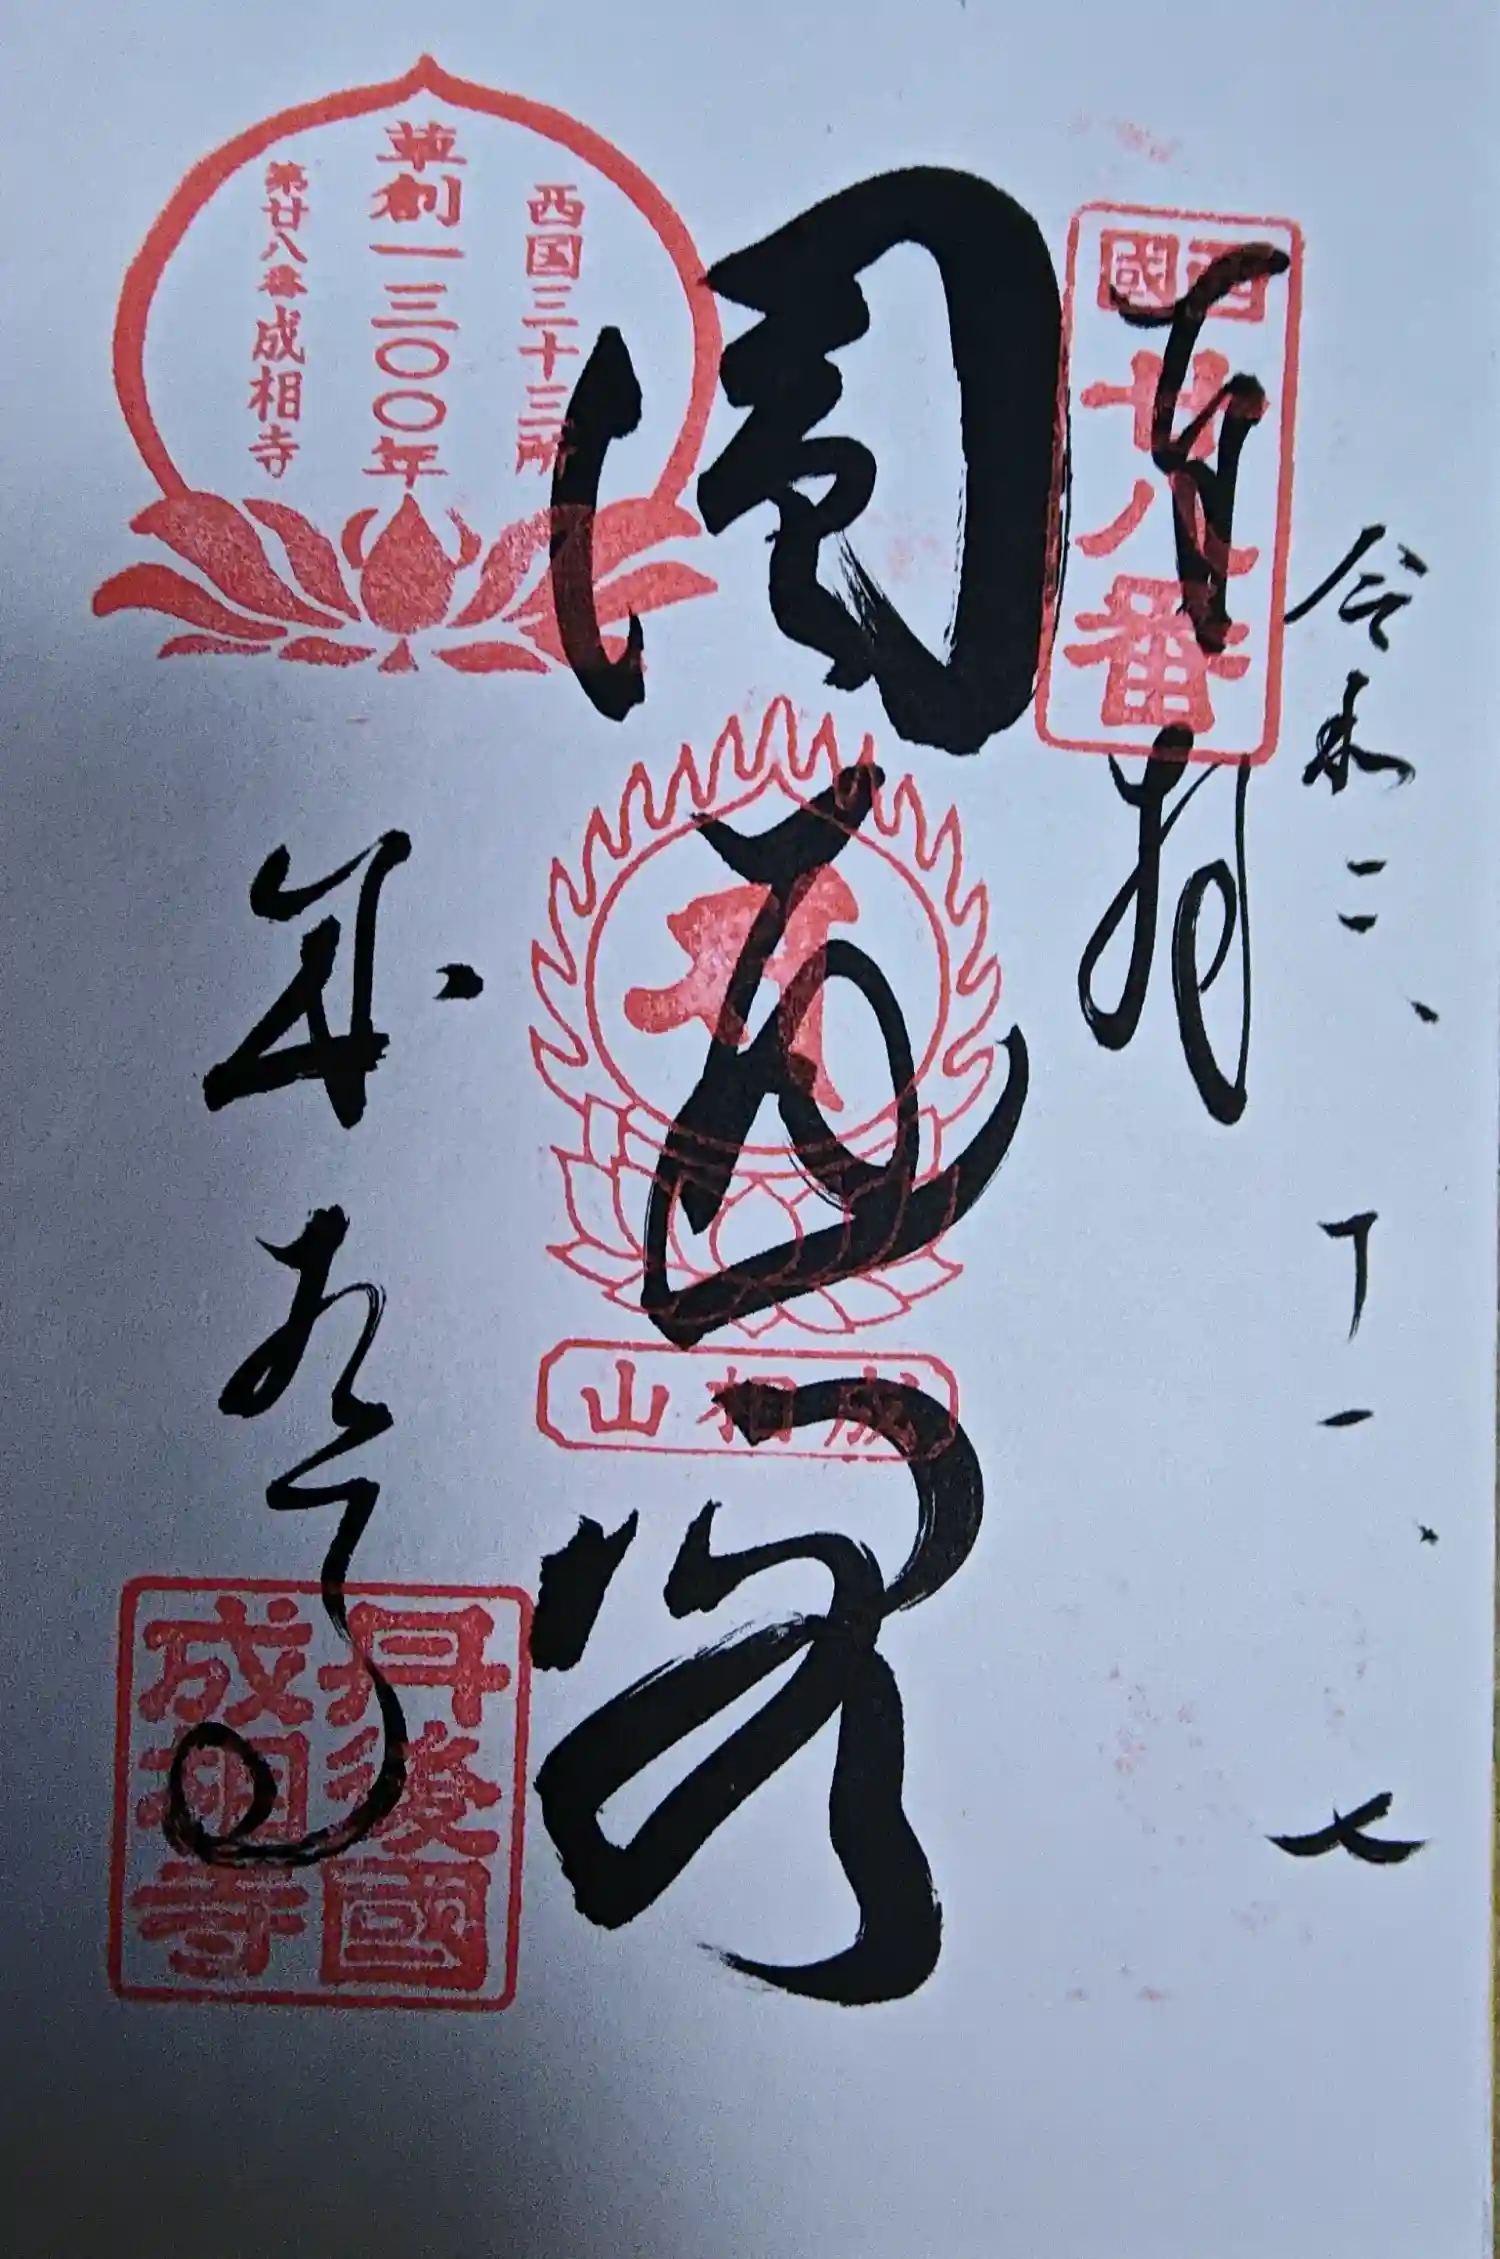 令和二、十一、七
西國
廿八番
奉拝
圓通閣
成相山
西国三十三所
草創一三〇〇年
第廿八番成相寺
成相寺
丹後國
成相寺